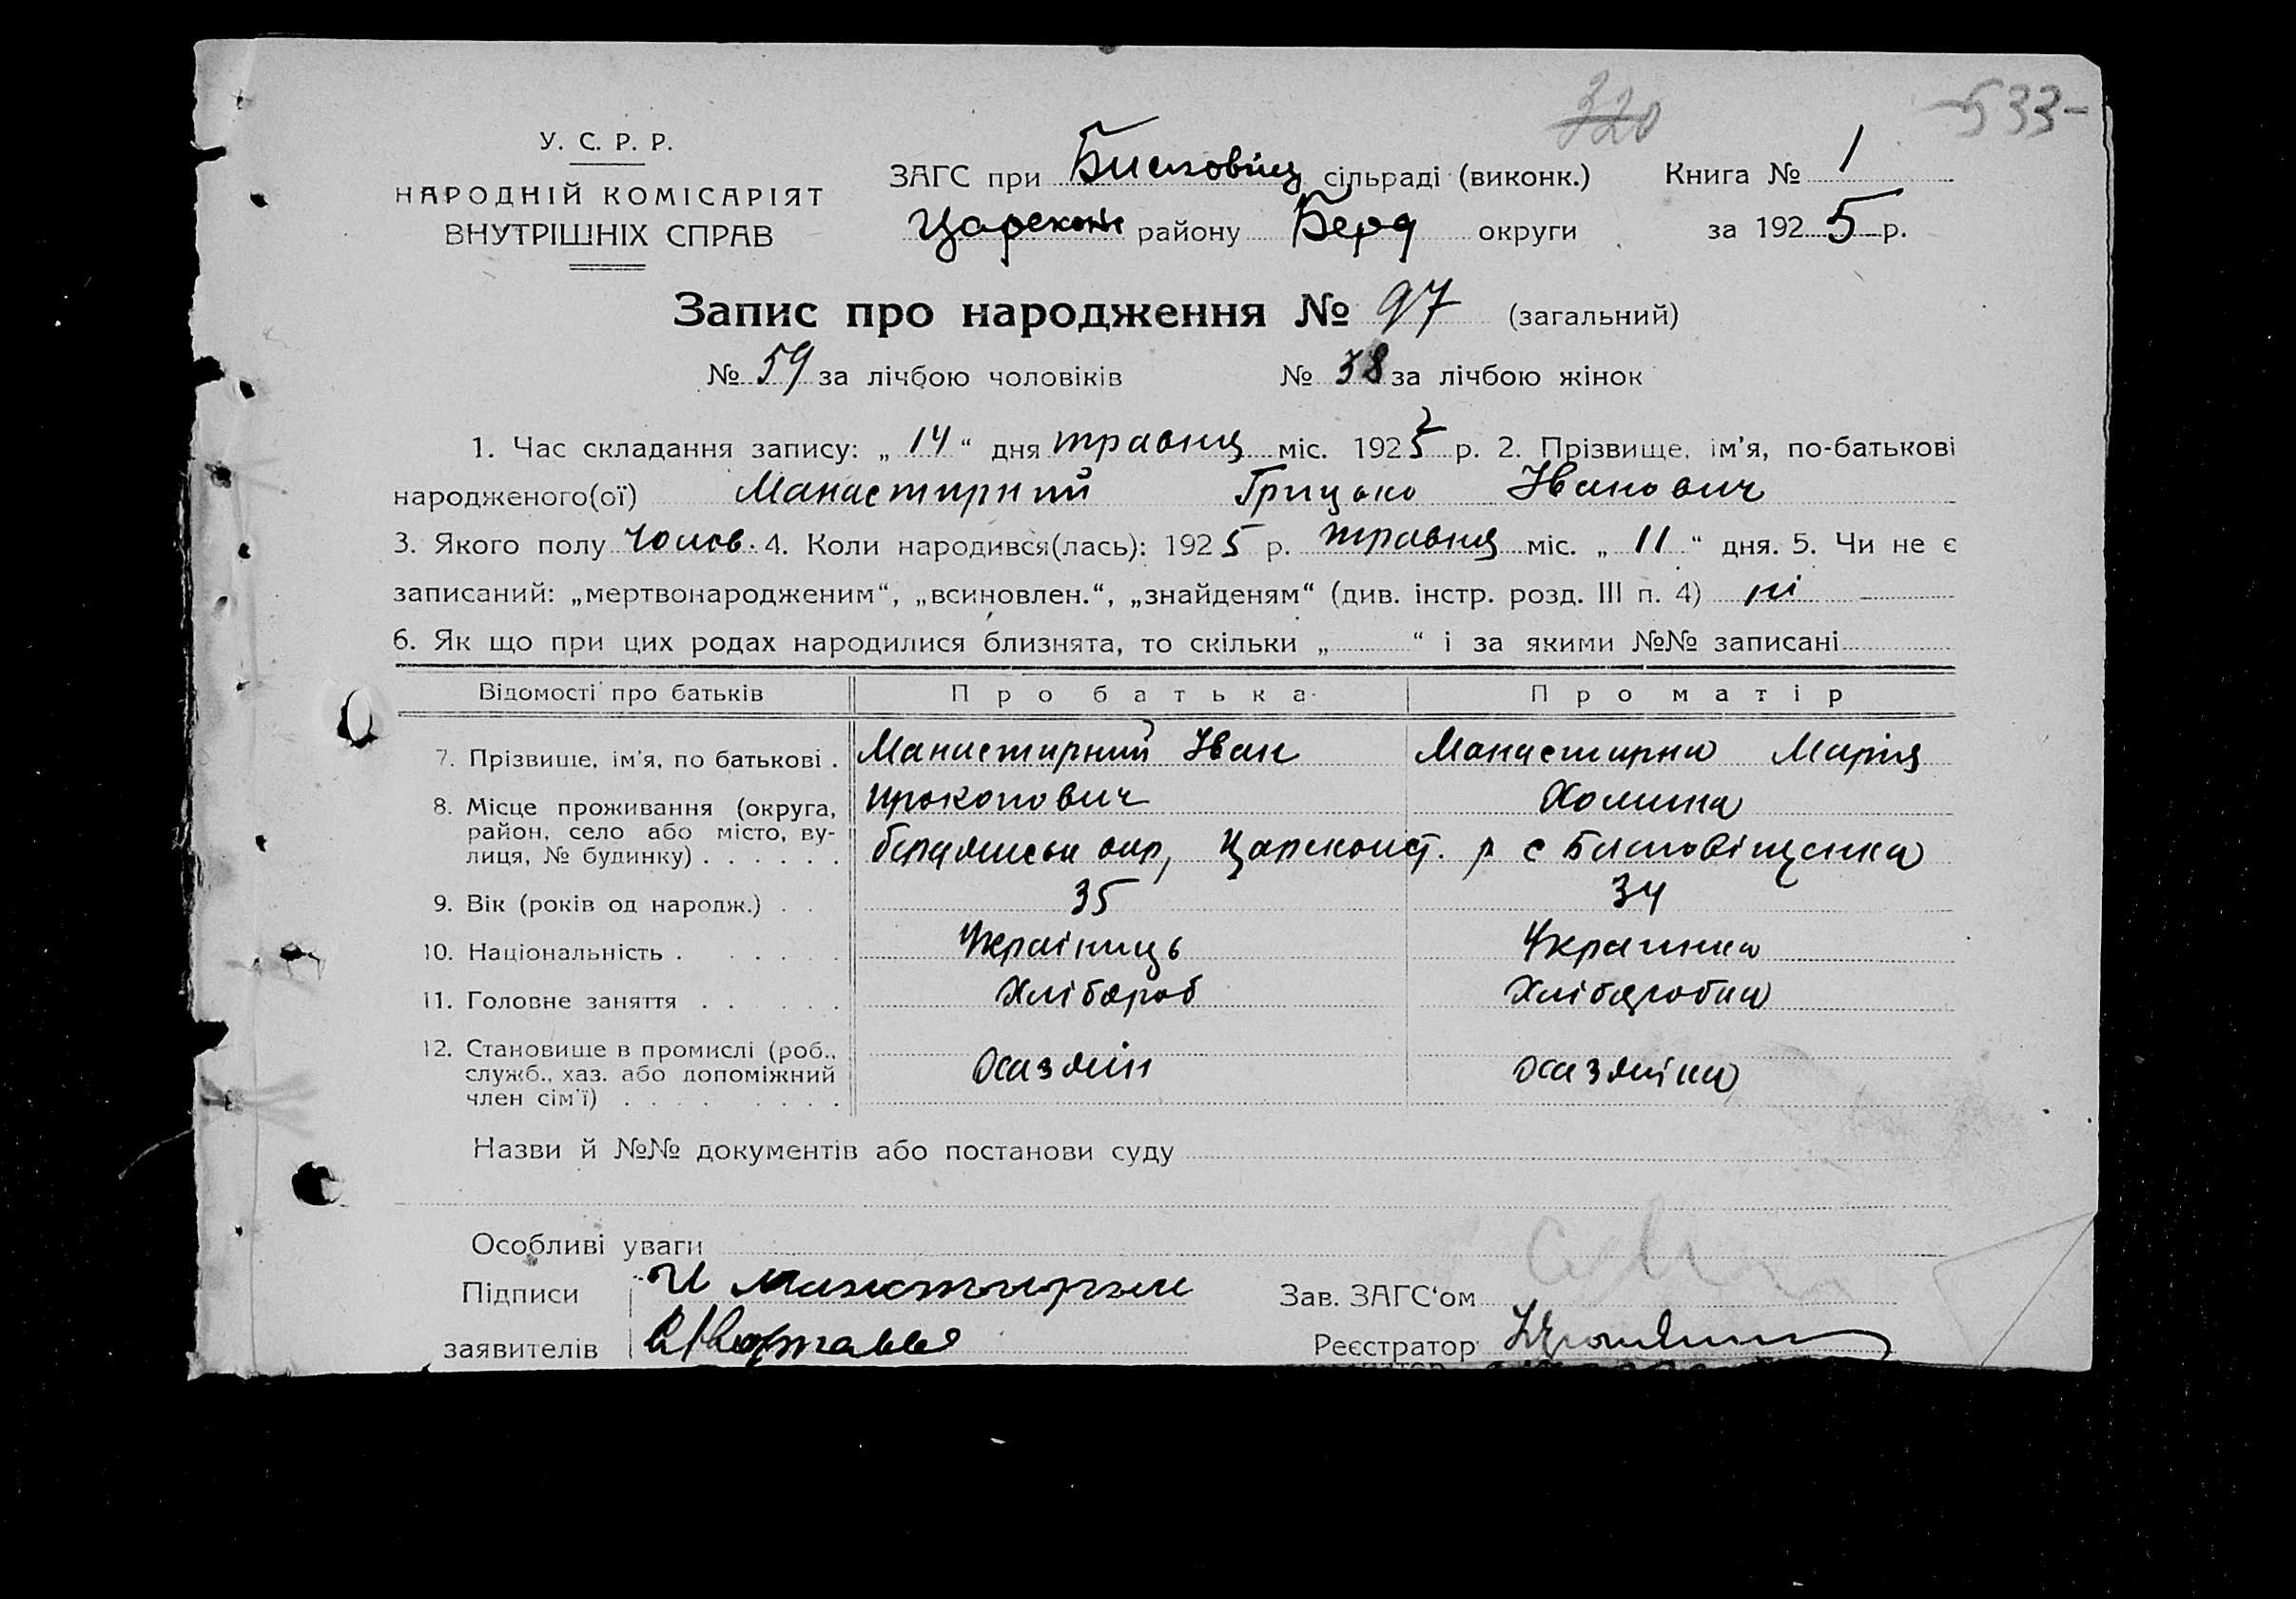 320 -533-
У. С. Р. Р.
НАРОДНІЙ КОМІСАРІЯТ
ВНУТРІШНІХ СПРАВ
ЗАГС при сільраді (виконк.) Книга № 1
району Берд округи за 1925 р.
Запис про народження № 97 (загальний)
№ 59 за лічбою чоловіків № 38 за лічбою жінок
1. Час складання запису: „ 14 “ дня травня міс. 1925 р. 2. Прізвище, ім'я, по-батькові
народженого(ої) Манастирний Грицько Іванович
3. Якого полу чолов. 4. Коли народився(лась): 1925 р. травня міс. „ 11 “ дня. 5. Чи не є
записаний: „мертвонародженим“, „всиновлен.“, „знайденям“ (див. інстр. розд. III п. 4) ні
6. Як що при цих родах народилися близнята, то скільки „ “ і за якими №№ записані
Відомості про батьків Про батька Про матір
7. Прізвище, ім'я, по батькові . Манастирний Іван Манастирна Марія
Прокопович
8. Місце проживання (округа,
район, село або місто, ву-
лиця, № будинку) . . . . . . окр, р с
9. Вік (років од народж.) . . 35 34
10. Національність . . . . . . Українець Українка
11. Головне заняття . . . . . Хлібороб Хліборобка
12. Становище в промислі (роб.,
служб., хаз. або допоміжний
член сім'ї) . . . . . . . . Хазяїн Хазяйка
Назви й №№ документів або постанови суду
Особливі уваги
Підписи И Манастирний Зав. ЗАГС'ом
заявителів Реєстратор